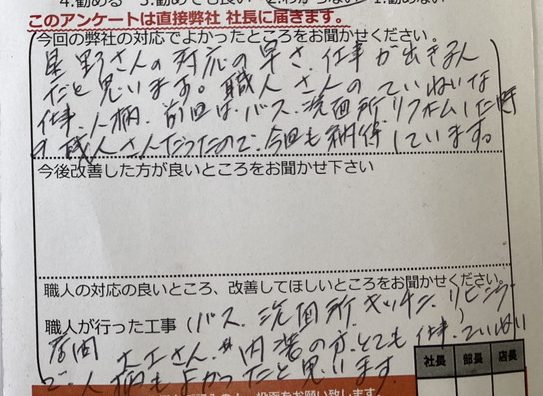 4.勧める 3.勧めても良い 2.わからない 1.勧めない
このアンケートは直接弊社 社長に届きます。
今回の弊社の対応でよかったところをお聞かせください。
星野さんの対応の早さ、仕事が出きる人
だと思います。職人さんのていねいな
仕事、人柄、前回は、バス、洗面所、リフォームした時
の職人さんだったので、今回も納得しています。
今後改善した方が良いところをお聞かせ下さい
職人の対応の良いところ、改善してほしいところをお聞かせください。
職人が行った工事（バス、洗面所、キッチン、リビング）
居間 大工さん、内装の方、とても仕事、ていねい
で、人柄もよかったと思います。
社長 部長 店長
お願い致します。